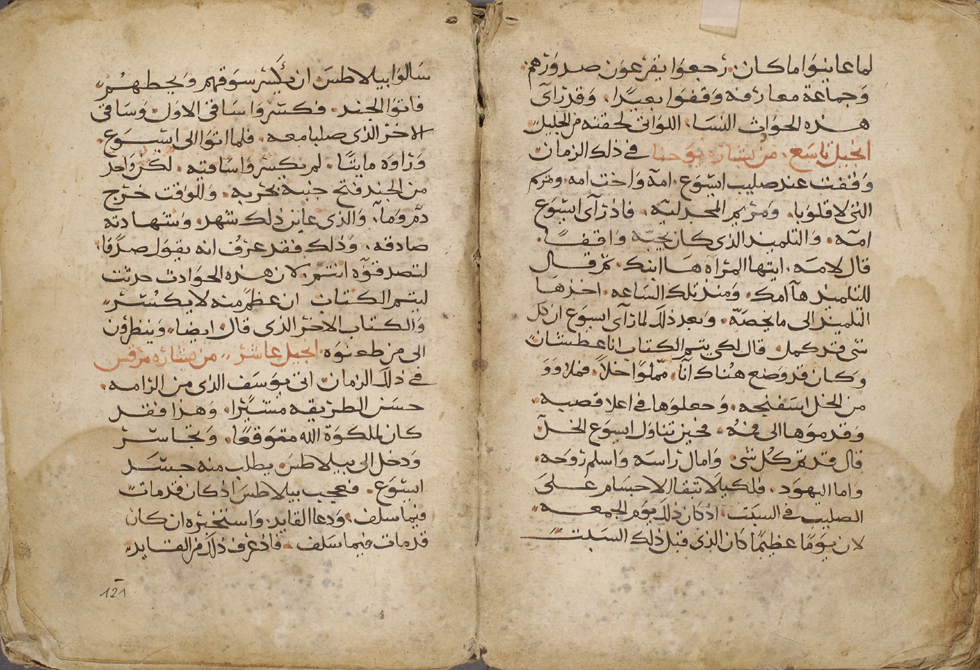 لما عاينوا ما كان. رجعوا يقرعون صدورهم
وجماعة معارفه وقفوا بعيدا. وقد رأى
هذه الحوادث النسا، اللواتي لحقنه من الجليل
انجيل تاسع، من بشارة يوحنا في ذلك الزمان
وقفت عند صليب ايسوع. امه واخت امه ومريم
التي لاقلوبا، ومريم المجدلية. فاذ رأى ايسوع
امه. والتلميذ الذي كان يحبه واقفا.
قال لامه، ايتها المراه ها ابنك. ثم قال
للتلميذ ها امك. ومنذ تلك الساعه. اخذها
التلميذ الى ما يخصه. وبعد ذلك لما رأى ايسوع ان كل
شي قد كمل. قال لكي يتم الكتاب انا عطشان
وكان قد وضع هناك انا. مملوا خلا. فملاوو
من الخل اسفنجه. وجعلوها في اعلا قصبه
وقدموها الى فمه. فحين تناول ايسوع الخل
قال قد تم كل شي وامال راسه واسلم روحه.
واما اليهود. فلكيلا تبقا الاجسام على
الصليب في السبت. اذ كان ذلك يوم الجمعه
لان يوما عظيما كان الذي قبل ذلك السبت
سالوا بيلاطس ان يكسر سوقهم ويحطهم
فاتوا الجند. فكسروا ساقي الاول. وساقي
الاخر الذي صلبا معه. فلما اتوا الى ايسوع.
وراوه مايتا. لم يكسروا ساقيه. لكن واحد
من الجند فتح جنبه بحربه. وللوقت خرج
دم وما، والذي عاين ذلك شهد وشهادته
صادقه. وذلك فقد عرف انه يقول صدقا،
لتصدقوه انتم. لان هذه الحوادث حدثت
ليتم الكتاب ان عظم منه لا يكسر
والكتاب الاخر الذي قال ايضا، وينظرون
الى من طعنوه. انجيل عاشر من بشارة مرقس
في ذلك الزمان اتى يوسف الذي من الرامه.
حسن الطريقه مستيرا. وهذا فقد
كان لملكوة الله متوقعا. وتجاسر
ودخل الى بيلاطس. يطلب منه جسد
ايسوع. فعجب بيلاطس اذ كان قد مات
فيما سلف. ودعا القايد، واستخبره ان كان
قد مات فيما سلف. فاذ عرف ذلك من القايد
121